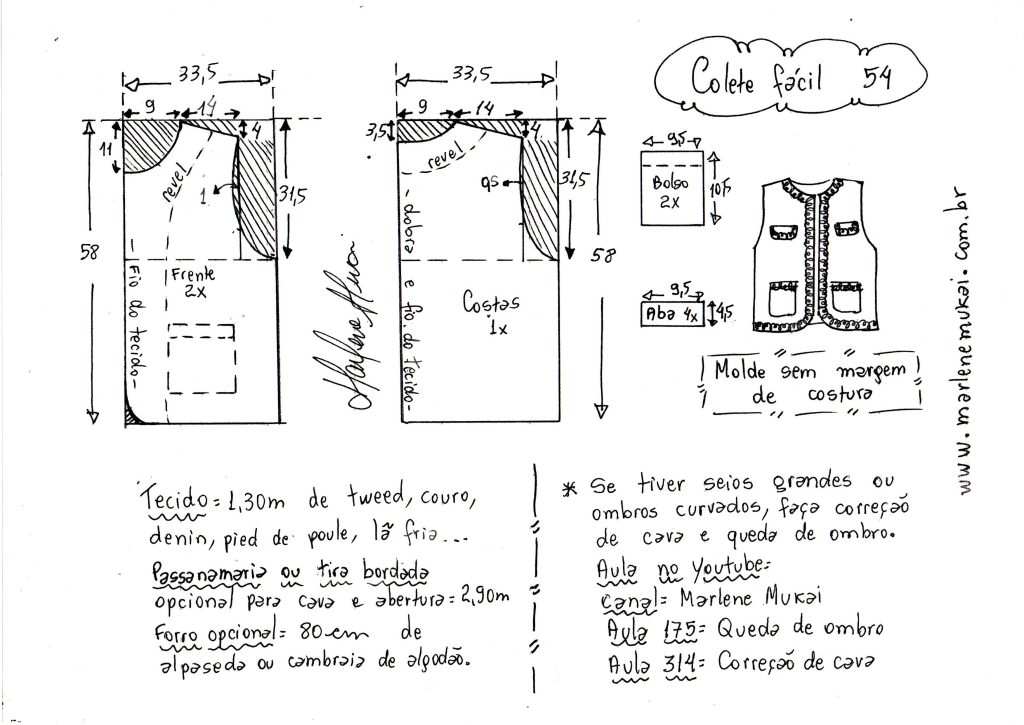 Colete fácil 54
33,5
9
14
4
11
revel
1
31,5
58
Frente
2x
Fio do tecido
33,5
9
14
4
3,5
revel
95
31,5
58
dobra e fio do tecido
Costas
1x
9,5
Bolso
2x
10,5
9,5
Aba 4x
4,5
Molde sem margem
de costura
www.marlenemukai.com.br
Tecido = 1,30m de tweed, couro,
denin, pied de poule, lã fria...
Passanamaria ou tira bordada
opcional para cava e abertura = 2,90m
Forro opcional = 80cm de
alpaseda ou cambraia de algodão.
* Se tiver seios grandes ou
ombros curvados, faça correção
de cava e queda de ombro.
Aula no Youtube =
Canal = Marlene Mukai
Aula 175 = Queda de ombro
Aula 314 = Correção de cava